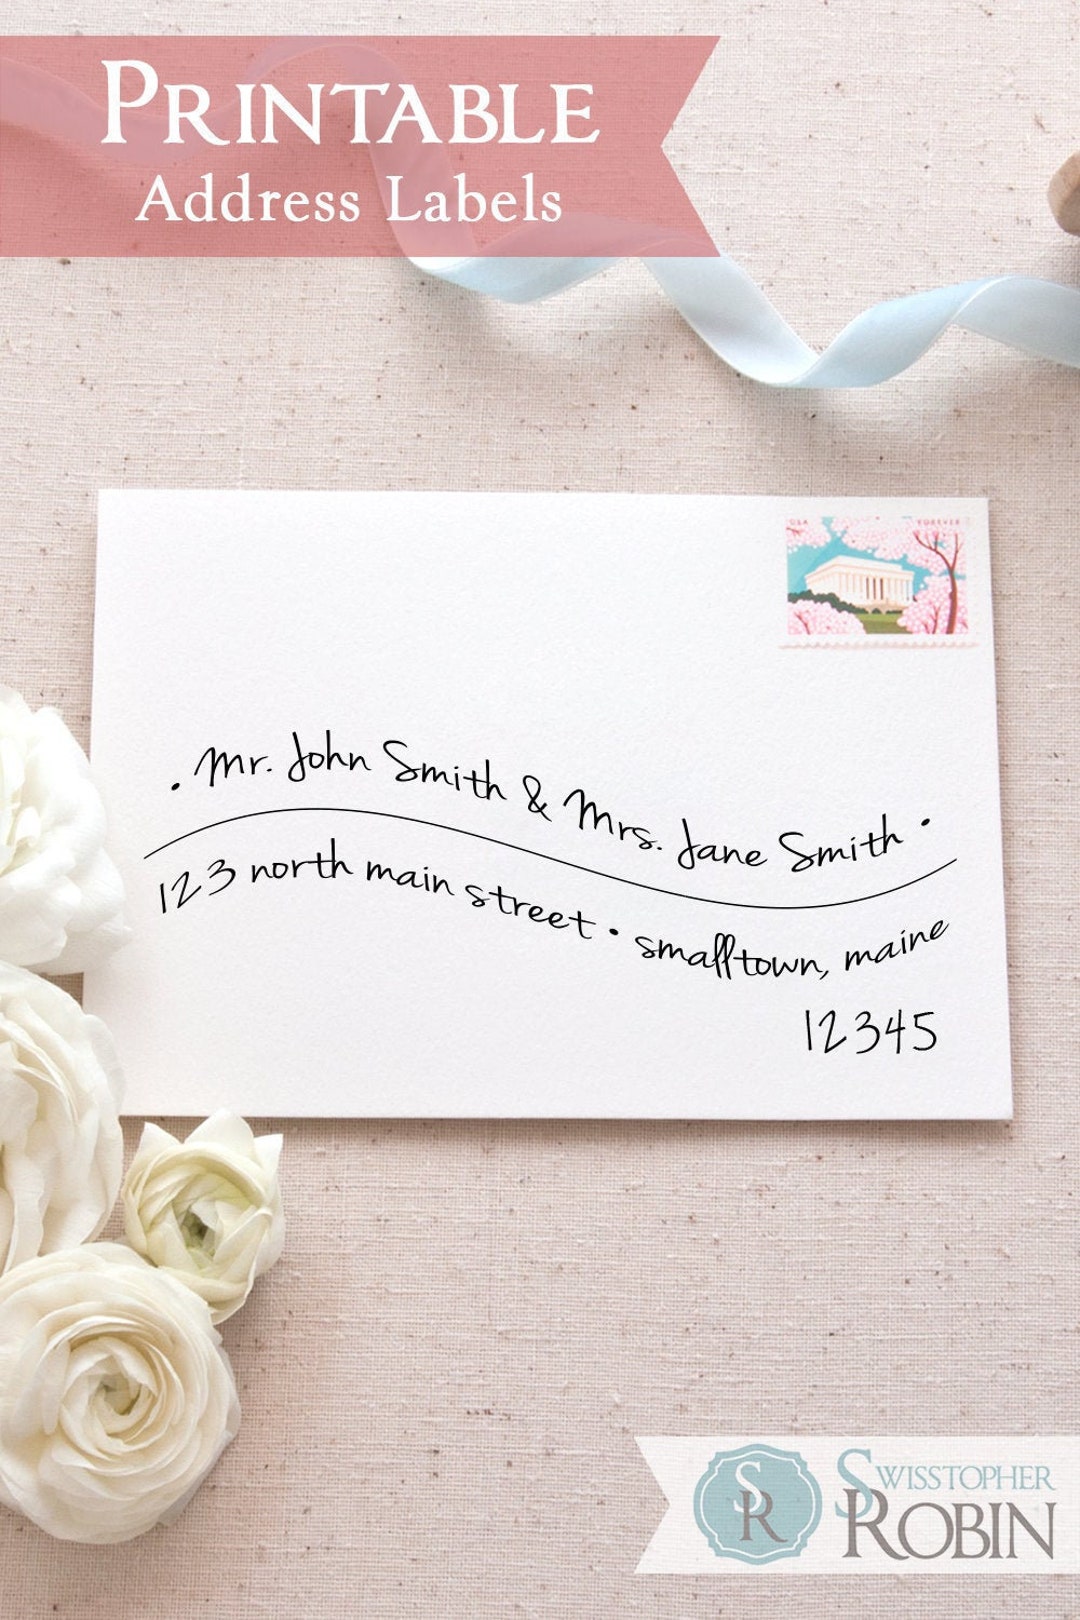 PRINTABLE
Address Labels
USA FOREVER
• Mr. John Smith & Mrs. Jane Smith •
123 north main street • smalltown, maine
12345
SR
SWISSTOPHER
ROBIN